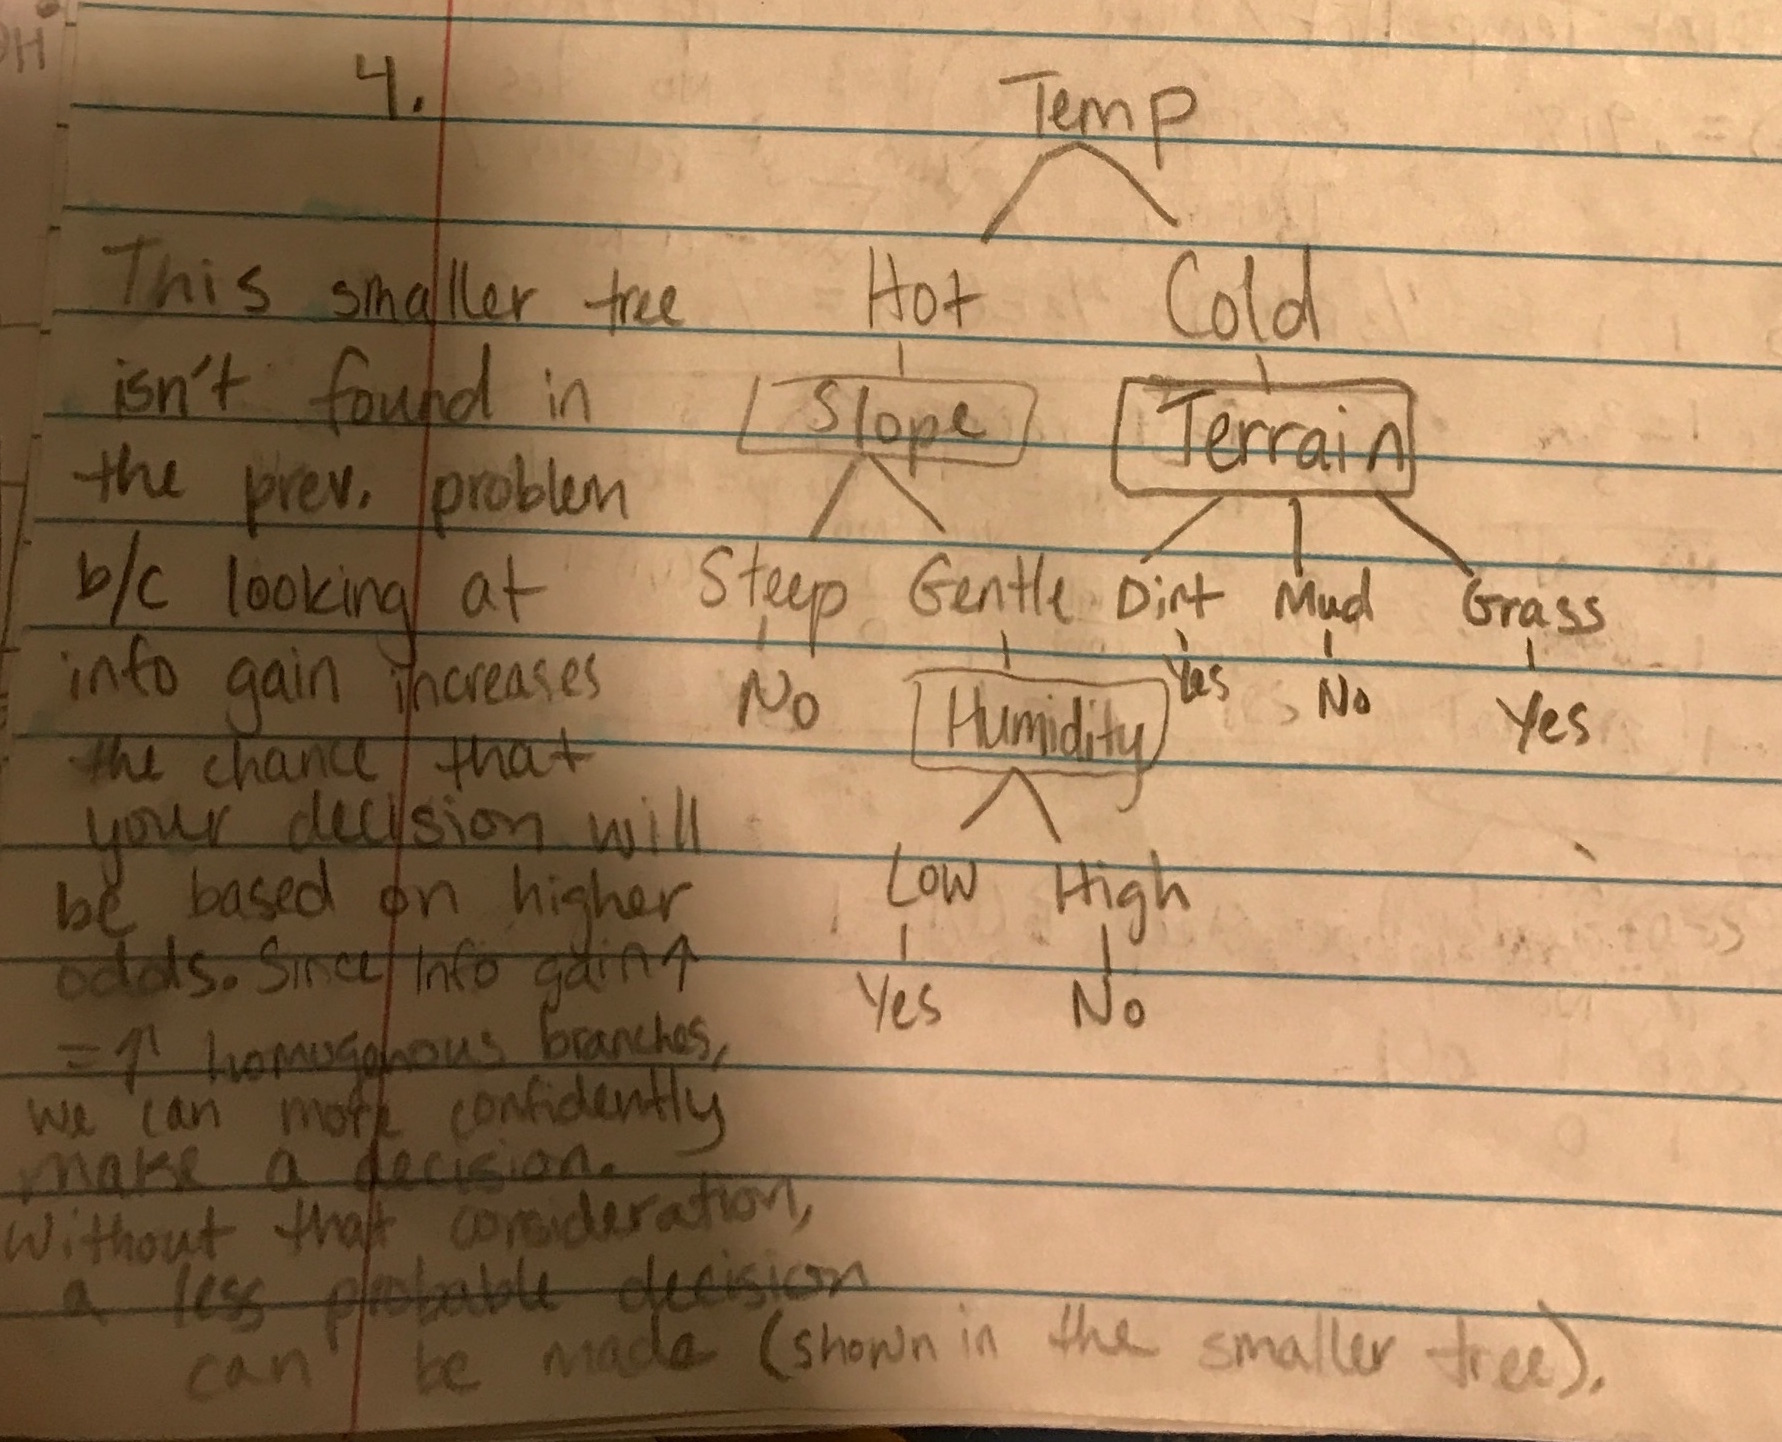 4.
Temp
Hot Cold
Slope Terrain
Steep Gentle Dirt Mud Grass
No Humidity Yes No Yes
Low High
Yes No
This smaller tree
isn't found in
the prev. problem
b/c looking at
info gain increases
the chance that
your decision will
be based on higher
odds. Since info gain↑
=↑ homogonous branches,
we can more confidently
make a decision.
Without that consideration,
a less probable decision
can be made (shown in the smaller tree).